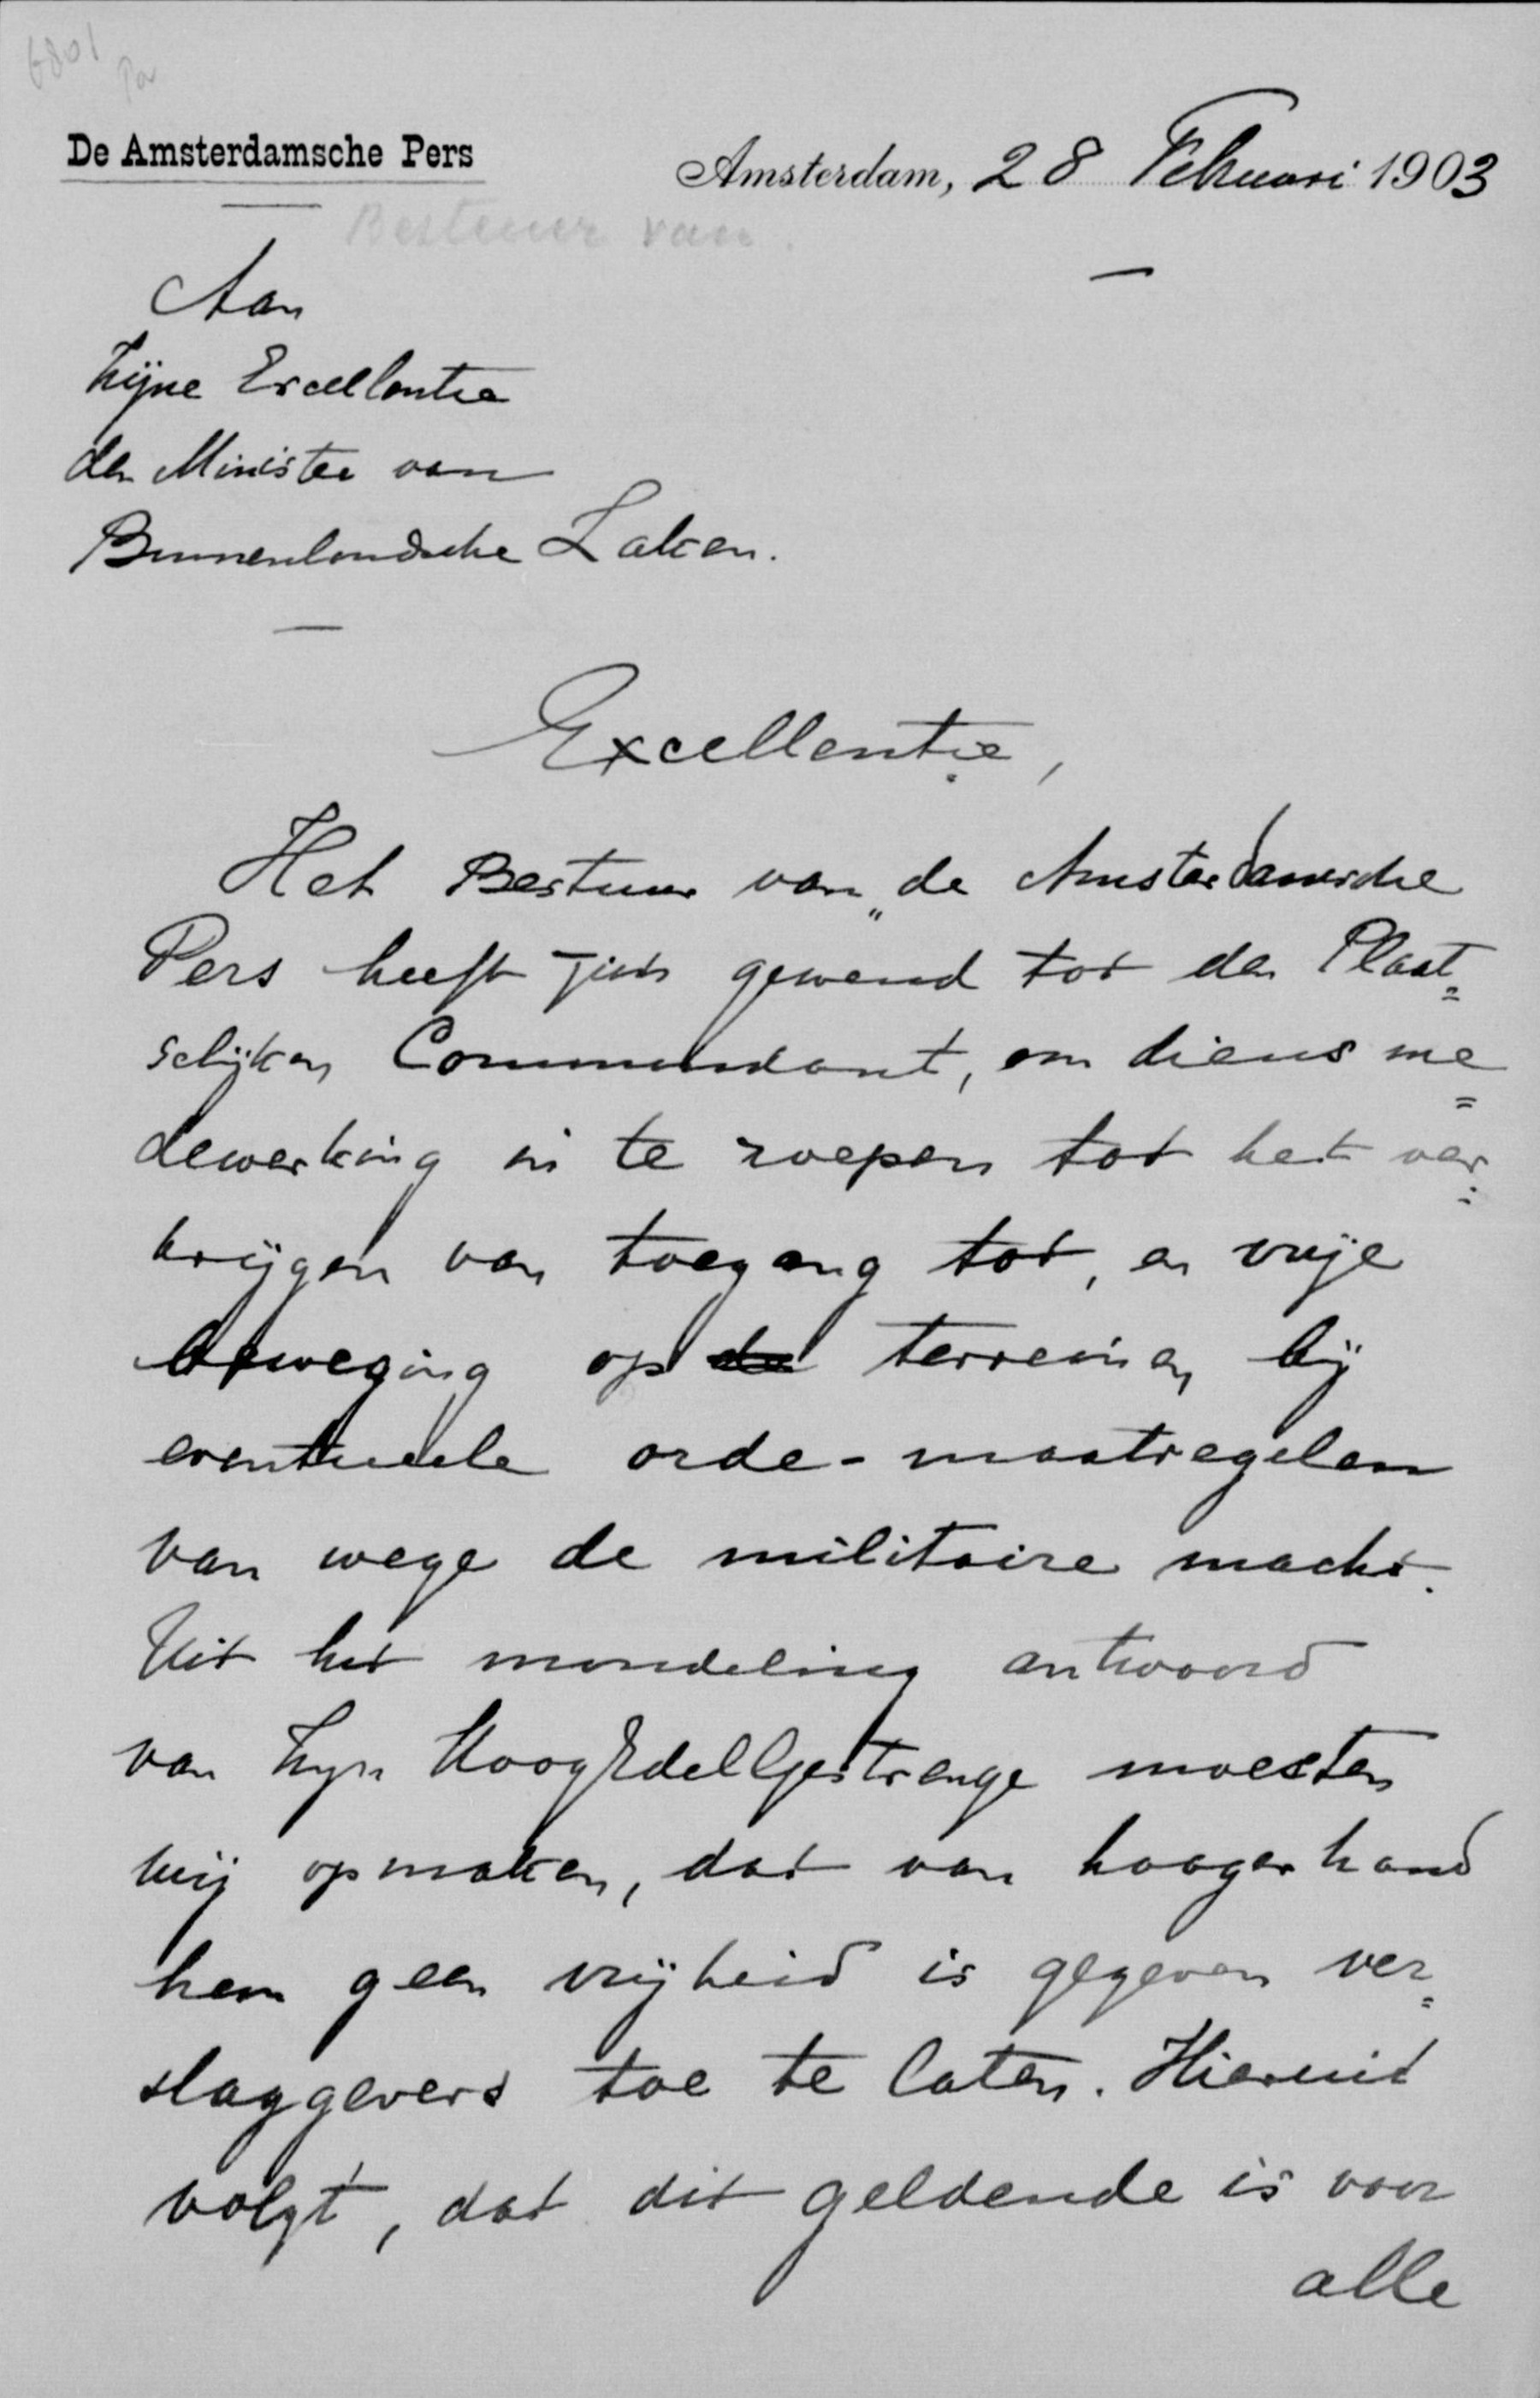 6801
De Amsterdamsche Pers
Amsterdam, 28 Februari 1903
Bestuur van.
Aan
Zijne Excellentie
den Minister van
Binnenlandsche Zaken.
Excellentie,
Het Bestuur van „de Amsterdamsche
Pers heeft zich gewend tot den Plaat=
selijken Commandant, om diens me=
dewerking in te roepen tot het ver=
krijgen van toegang tot, en vrije
beweging op de terreinen bij
eventueele orde-maatregelen
van wege de militaire macht.
Uit het mondeling antwoord
van Zijn HoogEdelGestrenge moesten
wij opmaken, dat van hoogerhand
hem geen vrijheid is gegeven ver=
slaggevers toe te laten. Hieruit
volgt, dat dit geldende is voor
alle